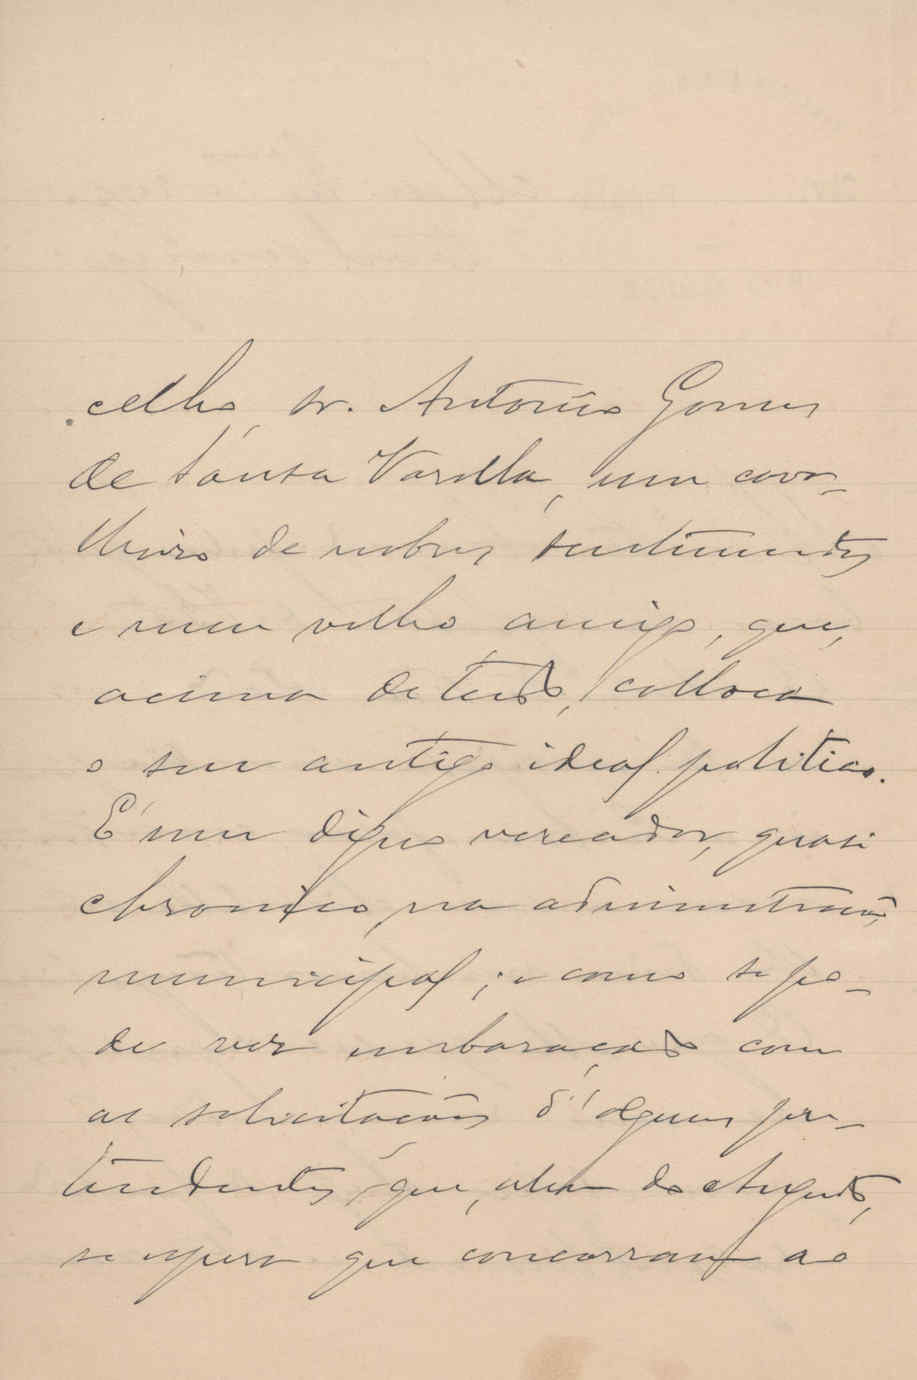 celho, sr. Antonio Gomes
de Sousa Varella, um cava-
lheiro de nobres sentimentos
e meu velho amigo, que,
acima de tudo, colloca
o seu antigo ideal politico.
É um digno vereador, quasi
chronico, na administração
municipal; e como se po-
de ver embaraçado com
as solicitações d'alguns per-
tendentes, que, alem do Augusto,
se espera que concorram ao